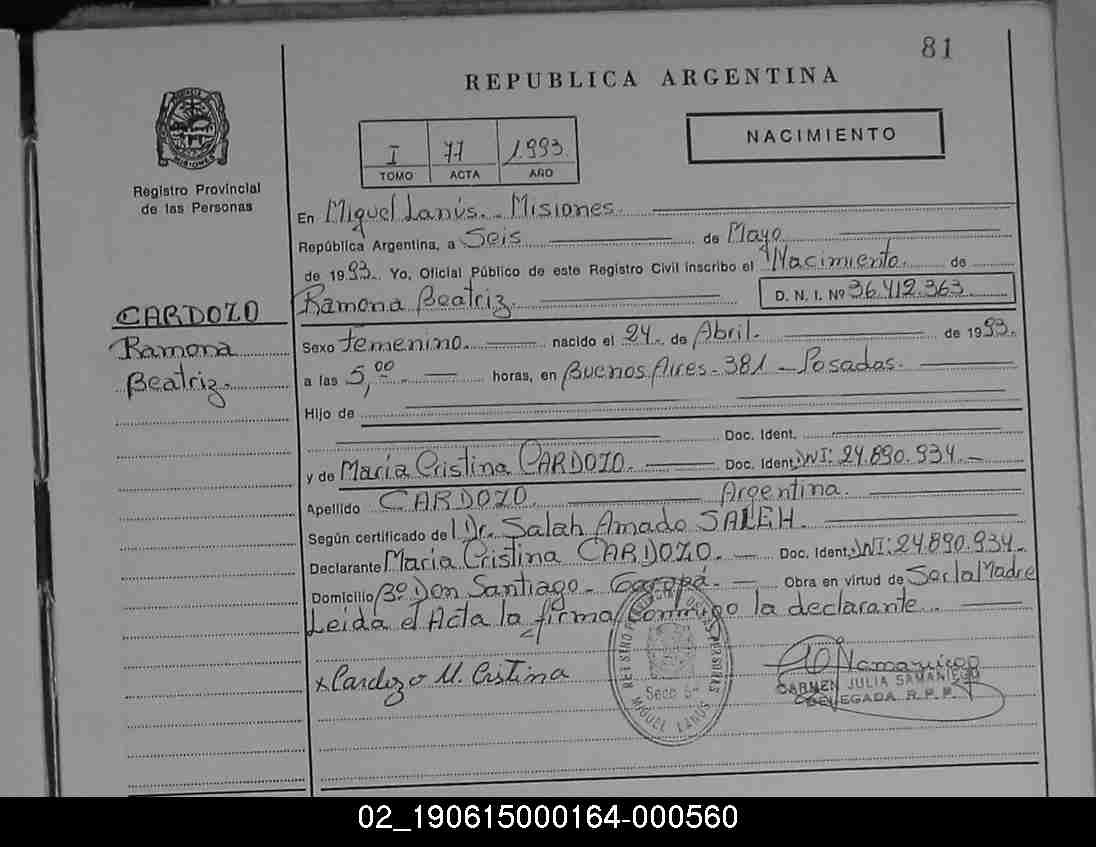 81
REPUBLICA ARGENTINA
NACIMIENTO
I 77 1.993.
TOMO ACTA AÑO
MISIONES
Registro Provincial
de las Personas
En Miguel Lanús. - Misiones.
República Argentina, a Seis de Mayo
de 1993. Yo, Oficial Público de este Registro Civil inscribo el Nacimiento. de
Ramona Beatriz. D. N. I. Nº 36.412.363
CARDOZO
Ramona
Beatriz.
Sexo femenino. nacido el 24. de Abril. de 1993.
a las 5,00. horas, en Buenos Aires - 381 - Posadas.
Hijo de
Doc. Ident.
y de María Cristina CARDOZO. Doc. Ident. DNI: 24.890.934. -
Apellido CARDOZO. Argentina.
Según certificado del Dr. Salah Amado SALEH.
Declarante María Cristina CARDOZO. - Doc. Ident. DNI: 24.890.934.
Domicilio Bº Don Santiago - Garopá. - Obra en virtud de Ser la Madre
Leida el Acta la firma conmigo la declarante.
x Cardozo M. Cristina
Secc 5ª
MIGUEL LANUS
CARMEN JULIA SAMANIEGO
DELEGADA R. P. P.
02_190615000164-000560